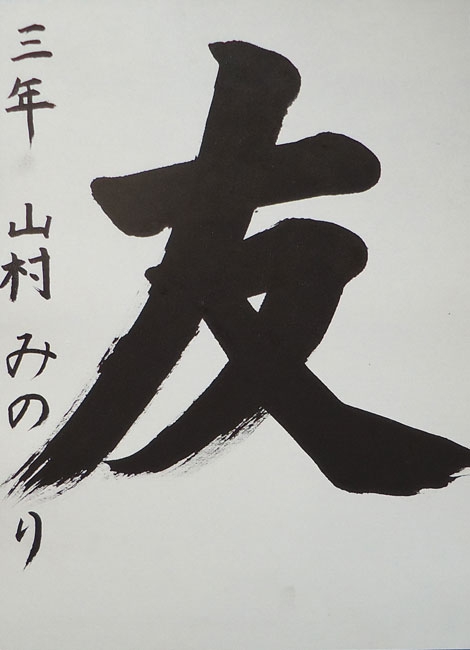 友
三年 山村 みのり